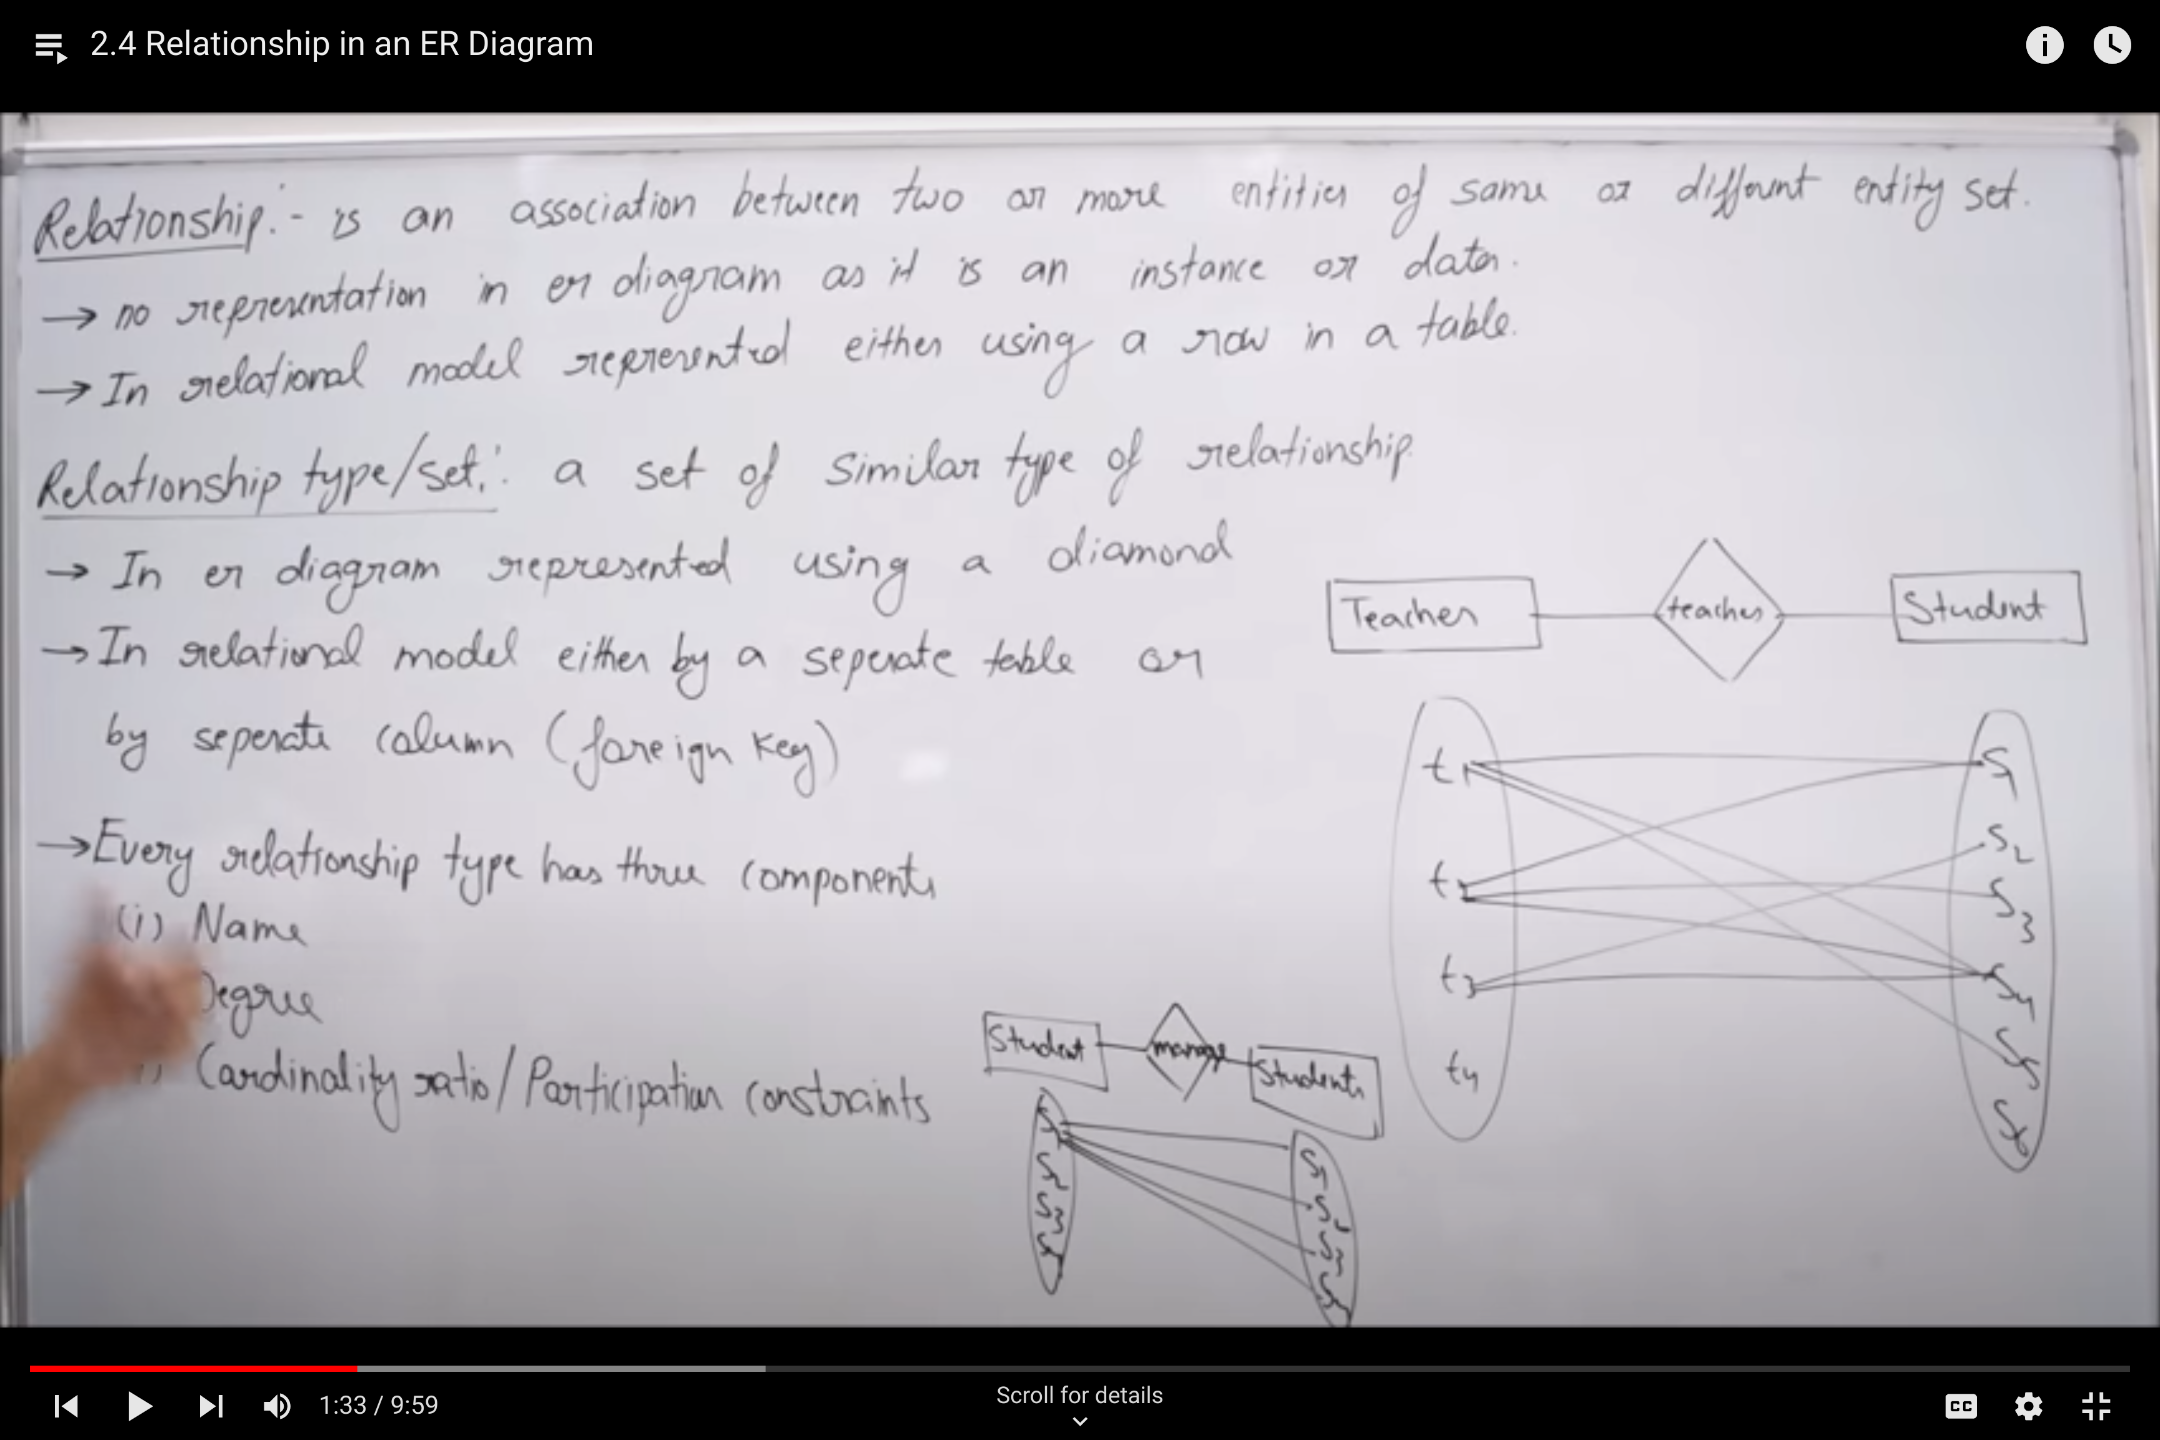 2.4 Relationship in an ER Diagram
Relationship:- is an association between two or more entities of same or different entity set.
→ no representation in er diagram as it is an instance or data.
→ In relational model represented either using a row in a table.
Relationship type/set: a set of similar type of relationship
→ In er diagram represented using a diamond
→ In relational model either by a seperate table or
by seperate column (foreign key)
→ Every relationship type has three components
(i) Name
Degree
Cardinality ratio/Participation constraints
Teacher teaches Student
t1 S1
t2 S2
S3
t3 S4
t4 S5
S6
Student manage Students
S1 S1
S2 S2
S3 S3
1:33 / 9:59
Scroll for details
CC